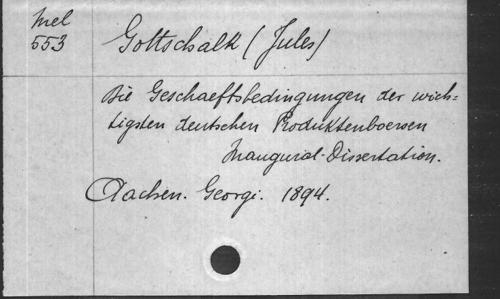 Mel
553
Gottschalk (Jules)
Die Geschaeftsbedingungen der wich=
tigsten deutschen Produktenboersen
Inaugural-Dissertation.
Aachen. Georgi. 1894.